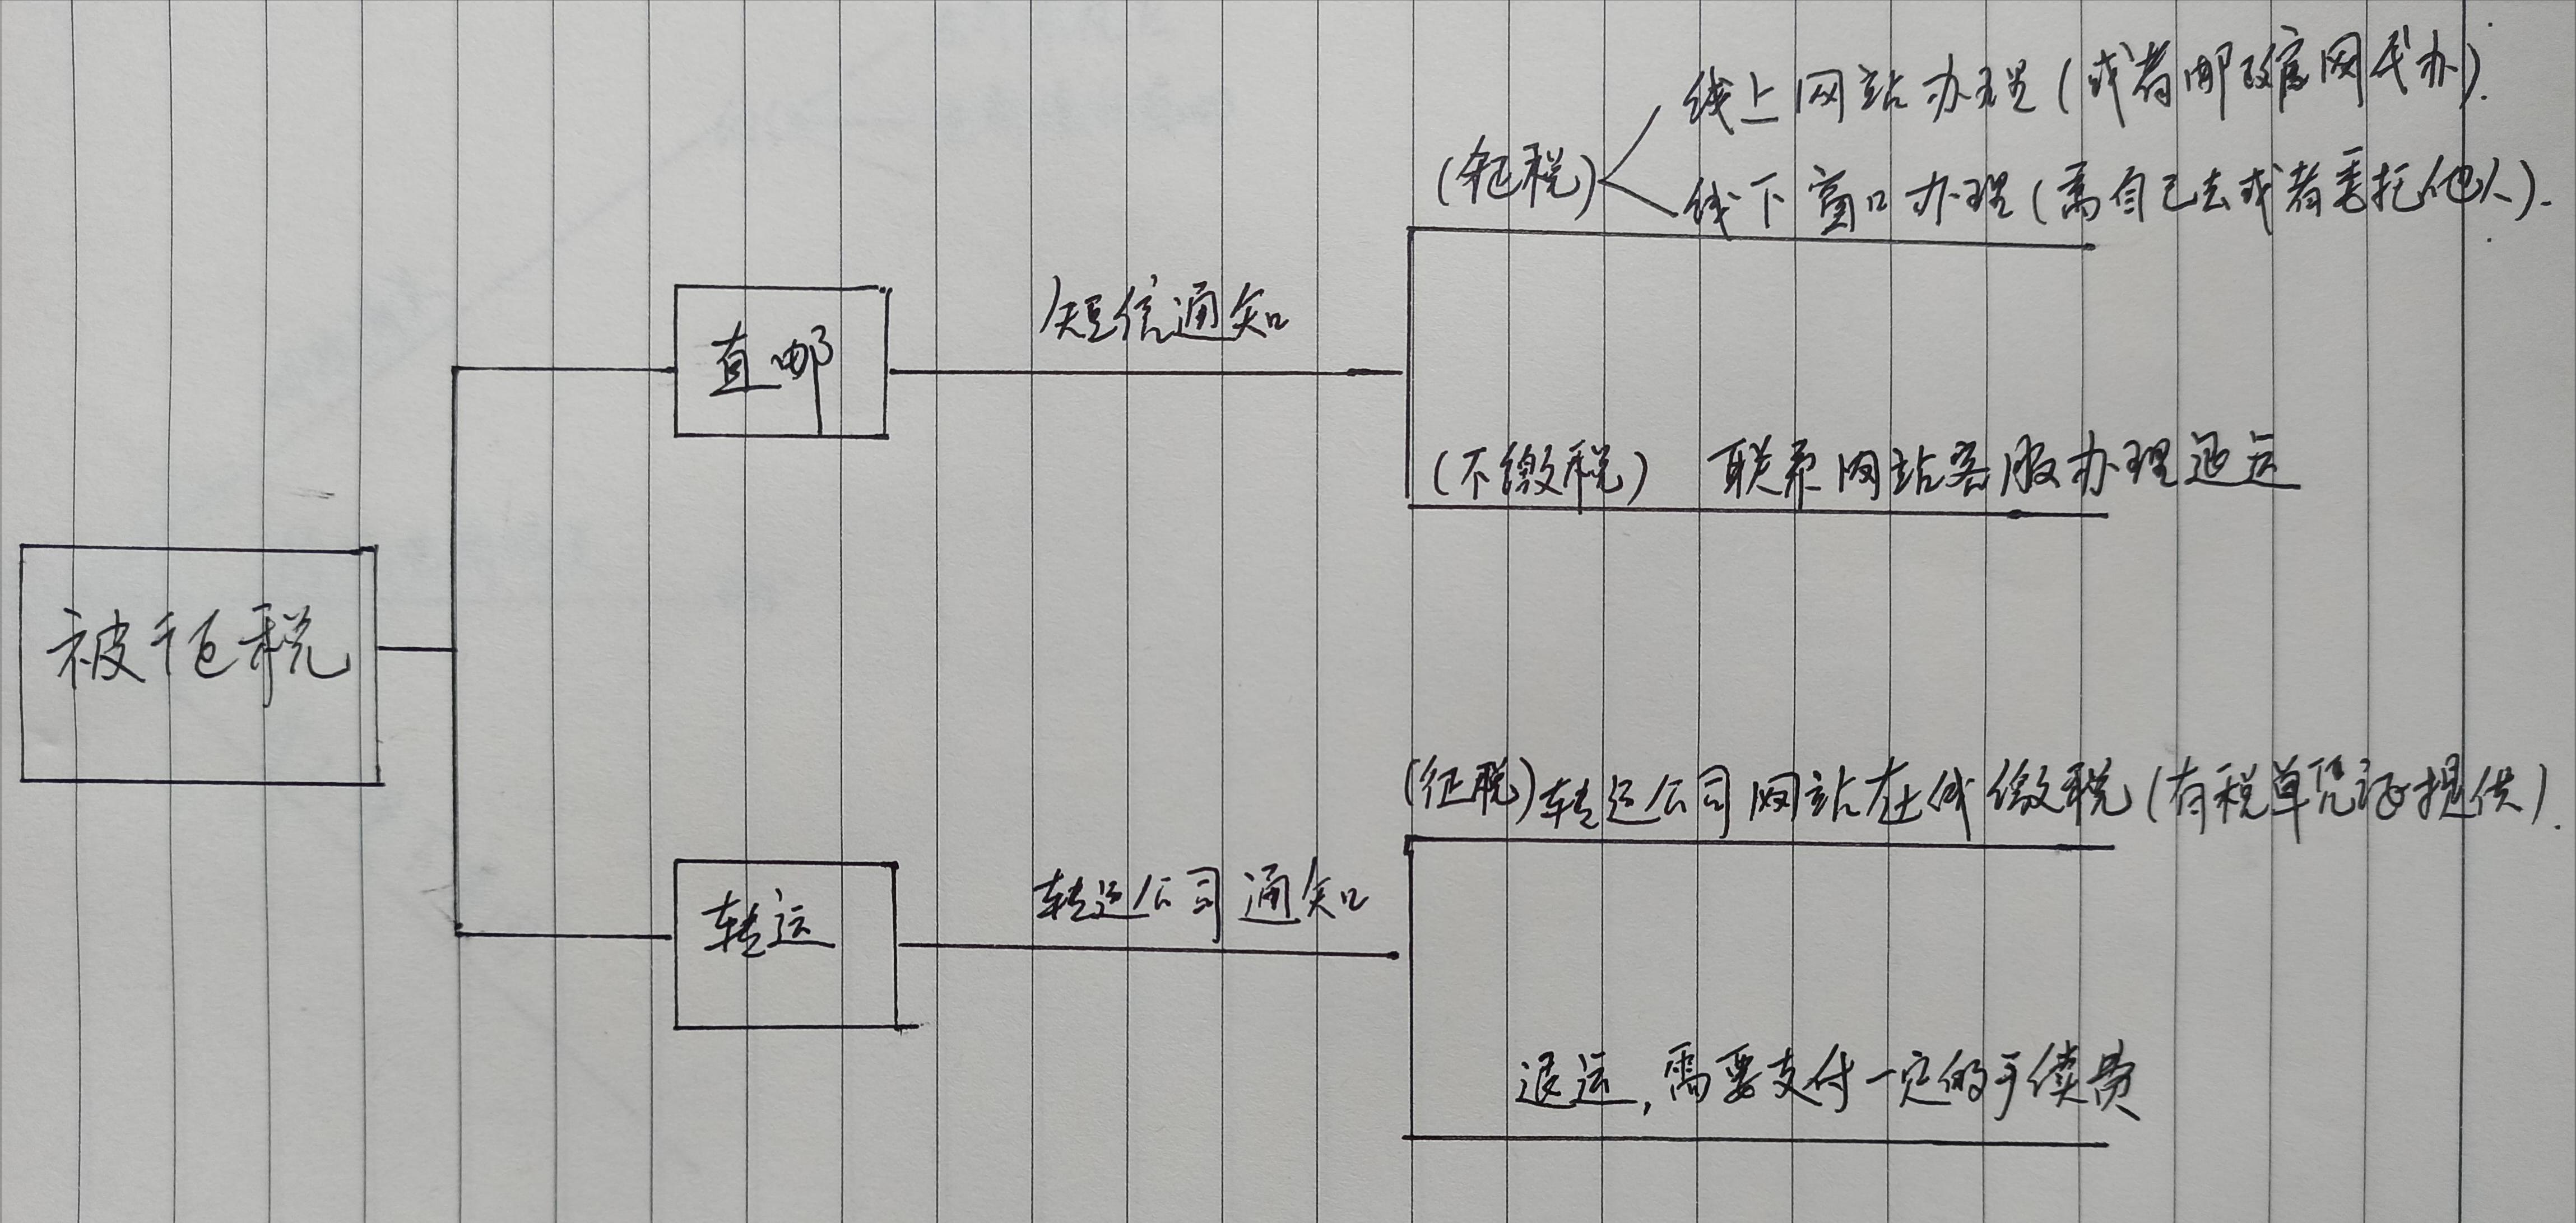 线上网站办理(或者邮政官网代办).
(征税)
线下窗口办理(需自己去或者委托他人).
短信通知
直邮
(不缴税) 联系网站客服办理退运
被征税
(征税)转运公司网站在线缴税(有税单凭证提供).
转运公司通知
转运
退运,需要支付一定的手续费